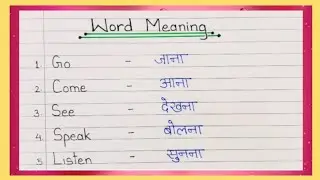 Word Meaning
1. Go - जाना
2. Come - आना
3. See - देखना
4. Speak - बोलना
5. Listen - सुनना